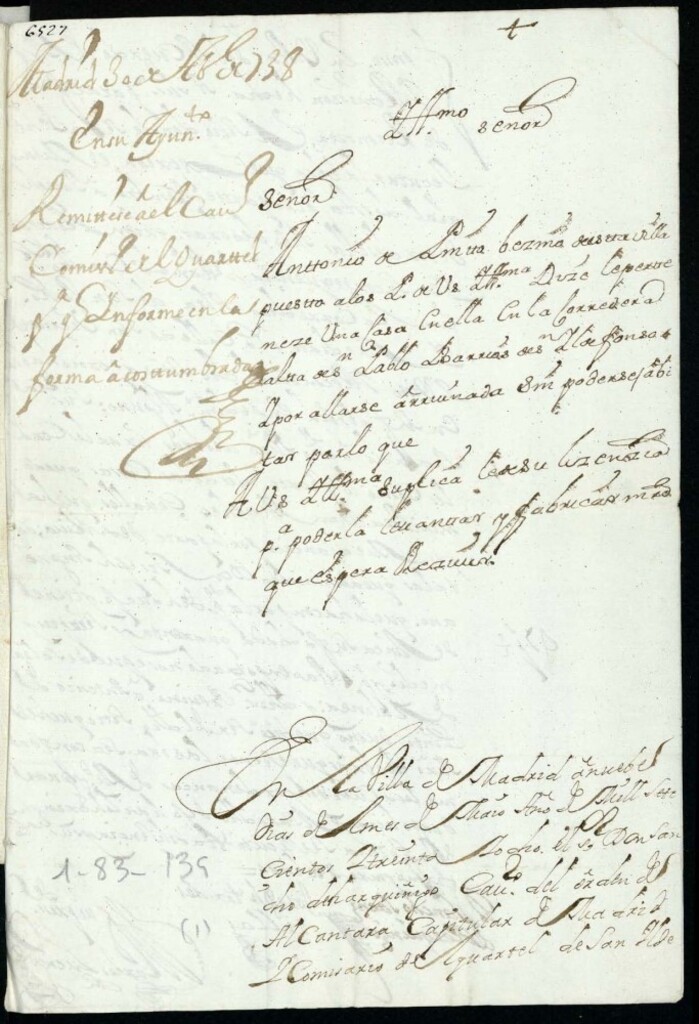 6527
+
Madrid 30 de Abl de 738
En su Ayunto.
Remitese a el Cavo
Comiso de el Quartel
pa q Informe en la
forma acostumbrada
Illmo Señor
Señor
Anttonio de vezino de esta villa
puesto a los P. de VS Illma Dize le perte
neze Una Casa en ella en la Corredera
alta de Sn Pablo Barrio de Sn Ildefonso
Y por allarse arruinada sin poderse abi
tar por lo que
A VS Illma suplica le de su lizenzia
pa poderla levantar y fabricar mrd
que espera Rezivir
En la Villa de Madrid a nuebe
dias del mes de Maio Año de Mill Sete
Cientos Y treinta Y ocho. el Sr Don San
cho Cavo. del orden de
Alcantara Capitular de Madrid
Y Comisario del quartel de San Ilde
1-83-139
(1)